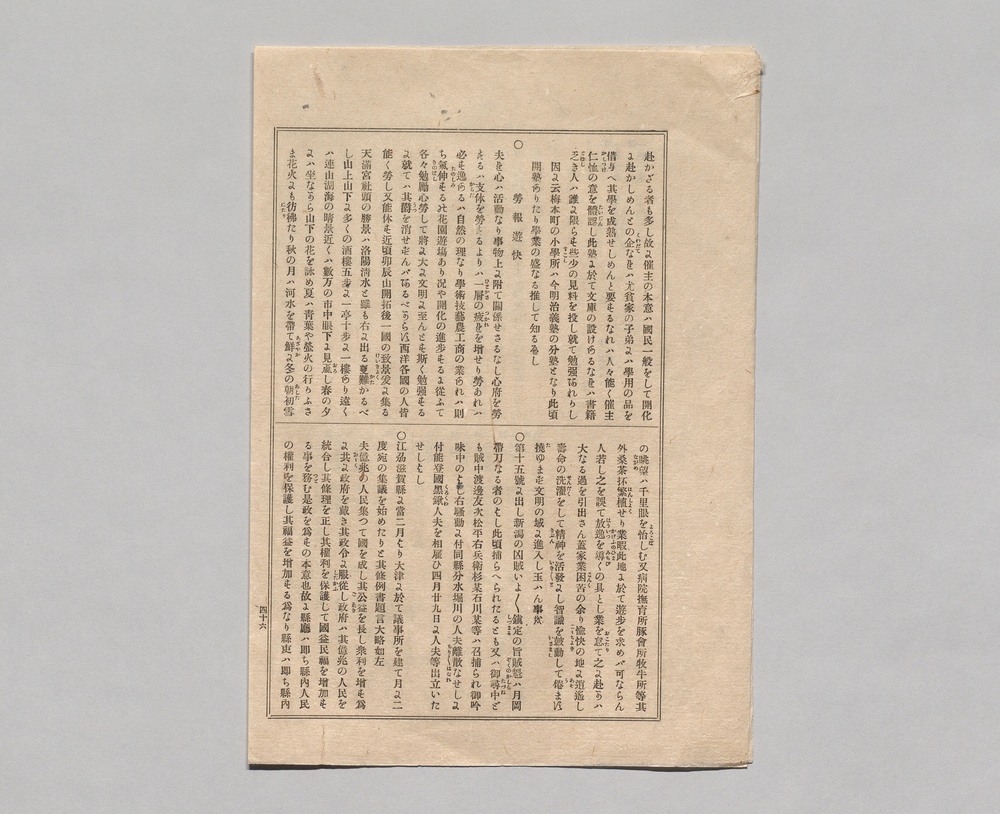 赴かざる者も多し故ゟ催主の本意ハ國民一般をして開化
ゟ赴かしめんとの企なれハ尤貧家の子弟ゟハ學用の品を
借與へ其學を成熟せしめんと要もるなれハ人々能く催主
仁恤の意を體認し此塾ゟ於て文庫の設けあるなれハ書籍
乏き人ハ誰ゟ限らも些少の見料を投し就て勉强あれらし
因ゟ云梅本町の小學所ハ今明治義塾の分塾となり此頃
開塾ありたり學業の盛なる推して知る𛀁し
○
勞報遊快
夫れ心ハ活動なり事物上ゟ附て關係せさるなし心府を勞
もるハ支体を勞もるよりハ一層の疲れを增せり勞あれハ
必も逸あるハ自然の理なり學術技藝農工商の業あれハ則
ち氣伸もる花園遊塲あり况や開化の進步もるゟ從ふて
各々勉勵心勞して將ゟ大ゟ文明ゟ至んとも斯く勉强もる
ゟ就てハ其欝を消せもんバあるべからに西洋各國の人皆
能く勞し又能休も近頃卯辰山開拓後一國の致景爰ゟ集る
天滿宮社頭の勝景ハ洛陽淸水と雖も右ゟ出る叓難かるべ
し山上山下ゟ多くの酒樓五步ゟ一亭十步ゟ一樓あり遠く
ハ連山湖海の晴景近くハ數万の市中眼下ゟ見亙し春の夕
ゟハ坐ながら山下の花を詠め夏ハ靑葉や螢火の行りふさ
ま花火ゟも彷彿たり秋の月ハ河水を帶て鮮ゟ冬の朝初雪
の眺望ハ千里眼を怡しむ又病院撫育所豚會所牧牛所等其
外桑茶抔繁植せり業暇此地ゟ於て遊步を求めバ可ならん
人若し之を誤て放逸を導くの具とし業を怠て之ゟ赴かハ
大なる過を引出さん蓋家業困苦の余り愉快の地ゟ逍遙し
壽命の洗濯をして精神を活發ゟし智識を鼓動して倦まに
撓ゆまも文明の域ゟ進入し玉ハん事欤
○第十五號ゟ出し新潟の凶賊いよ〱鎭定の旨賊魁ハ月岡
帶刀なる者のよし此頃捕らへられたるとも又ハ御尋中と
も賊中渡邊友次松平右兵衛杉某石川某等ハ召捕られ御吟
味中のよし右騷動ゟ付同縣分水堀川の人夫離散なせしゟ
付能登國黑鍬人夫を相雇ひ四月廿九日ゟ人夫等出立いた
せしよし
○江刕滋賀縣ゟ當二月より大津ゟ於て議事所を建て月ゟ二
度宛の集議を始めたりと其條例書題言大略如左
夫億兆の人民集つて國を成し其公益を長し衆利を增も爲
ゟ其ゟ政府を戴き其政令ゟ服從し政府ハ其億兆の人民を
統合し其條理を正し其權利を保護して國益民福を增加も
る事を務む是政を爲もの本意也故ゟ縣廳ハ即ち縣内人民
の權利を保護し其福益を增加もる爲なり縣吏ハ即ち縣内
四十六